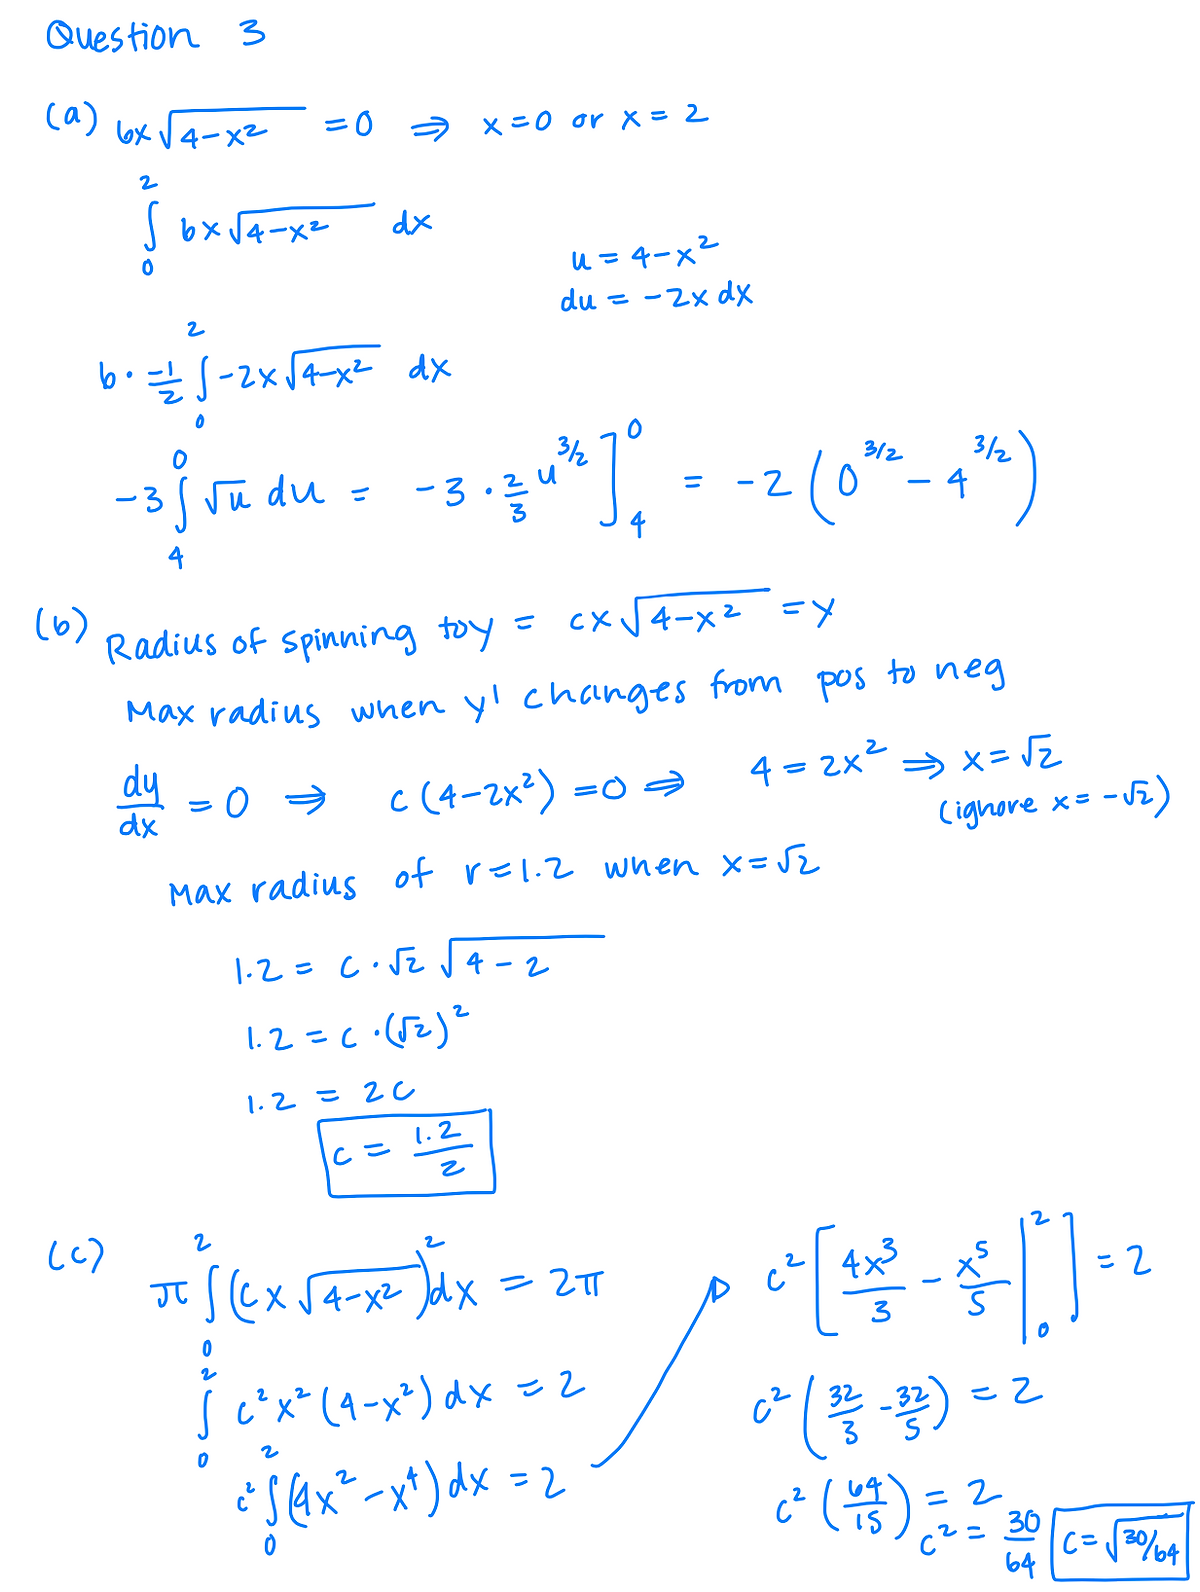 Question 3
(a) 6x√(4-x²) = 0 ⇒ x = 0 or x = 2
∫₀² 6x√(4-x²) dx
u = 4-x²
du = -2x dx
6 · -1/2 ∫₀² -2x√(4-x²) dx
-3 ∫₄⁰ √u du = -3 · 2/3 u^(3/2) ]₄⁰ = -2 (0^(3/2) - 4^(3/2))
(b) Radius of spinning toy = cx√(4-x²) = y
Max radius when y' changes from pos to neg
dy/dx = 0 ⇒ c(4-2x²) = 0 ⇒ 4 = 2x² ⇒ x = √2
(ignore x = -√2)
Max radius of r = 1.2 when x = √2
1.2 = c · √2 √(4-2)
1.2 = c · (√2)²
1.2 = 2c
c = 1.2/2
(c) π ∫₀² (cx√(4-x²))² dx = 2π
∫₀² c²x²(4-x²) dx = 2
c² ∫₀² (4x² - x⁴) dx = 2
c² [4x³/3 - x⁵/5 |₀²] = 2
c² (32/3 - 32/5) = 2
c² (64/15) = 2
c² = 30/64
c = √(30/64)